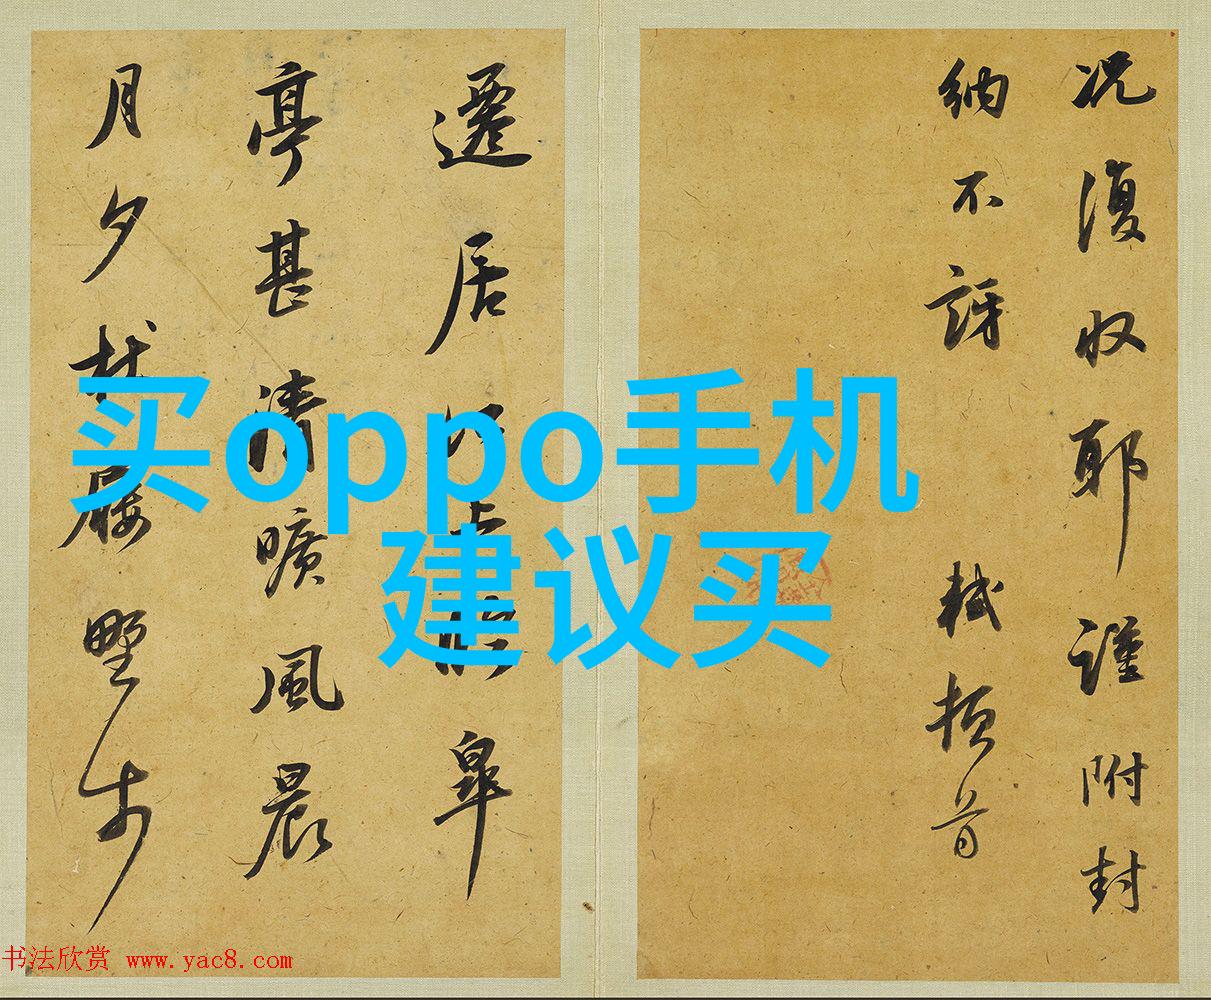 况復收耶謹附封
納不訝 軾頓首
遷居皋
亭甚清曠風晨
月夕杖屨野步
买oppo手机
建议买
书法欣赏 www.yac8.com